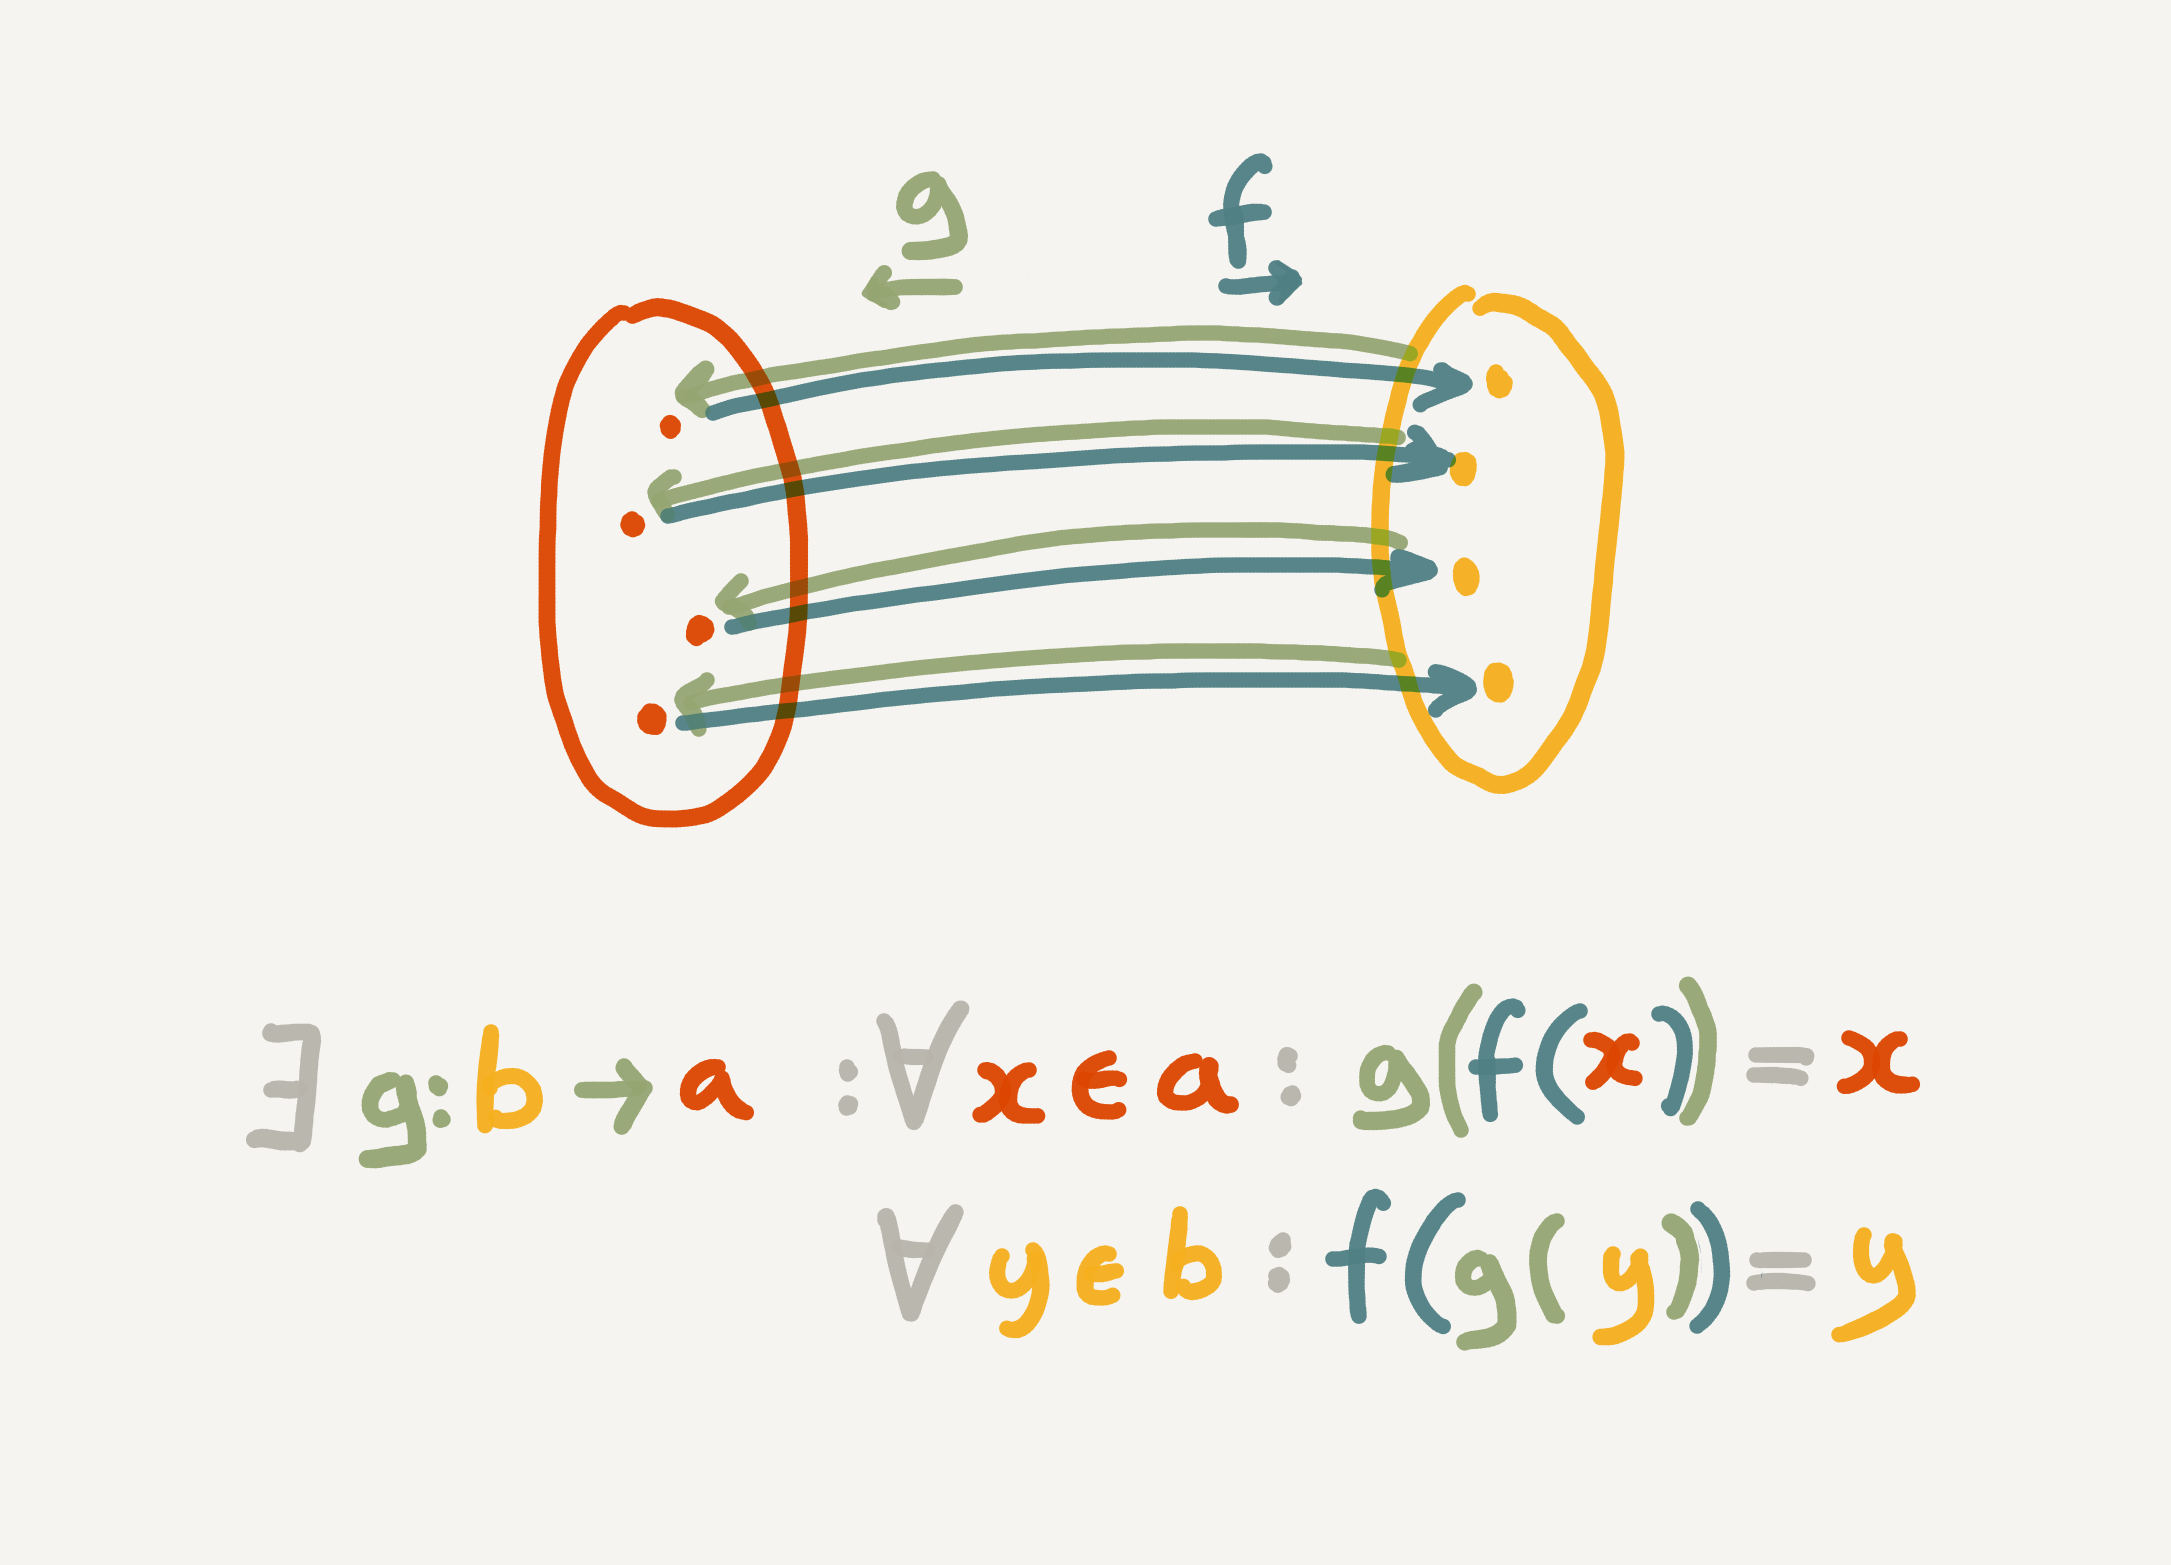 g f
∃ g: b → a : ∀ x ∈ a : g(f(x)) = x
∀ y ∈ b : f(g(y)) = y